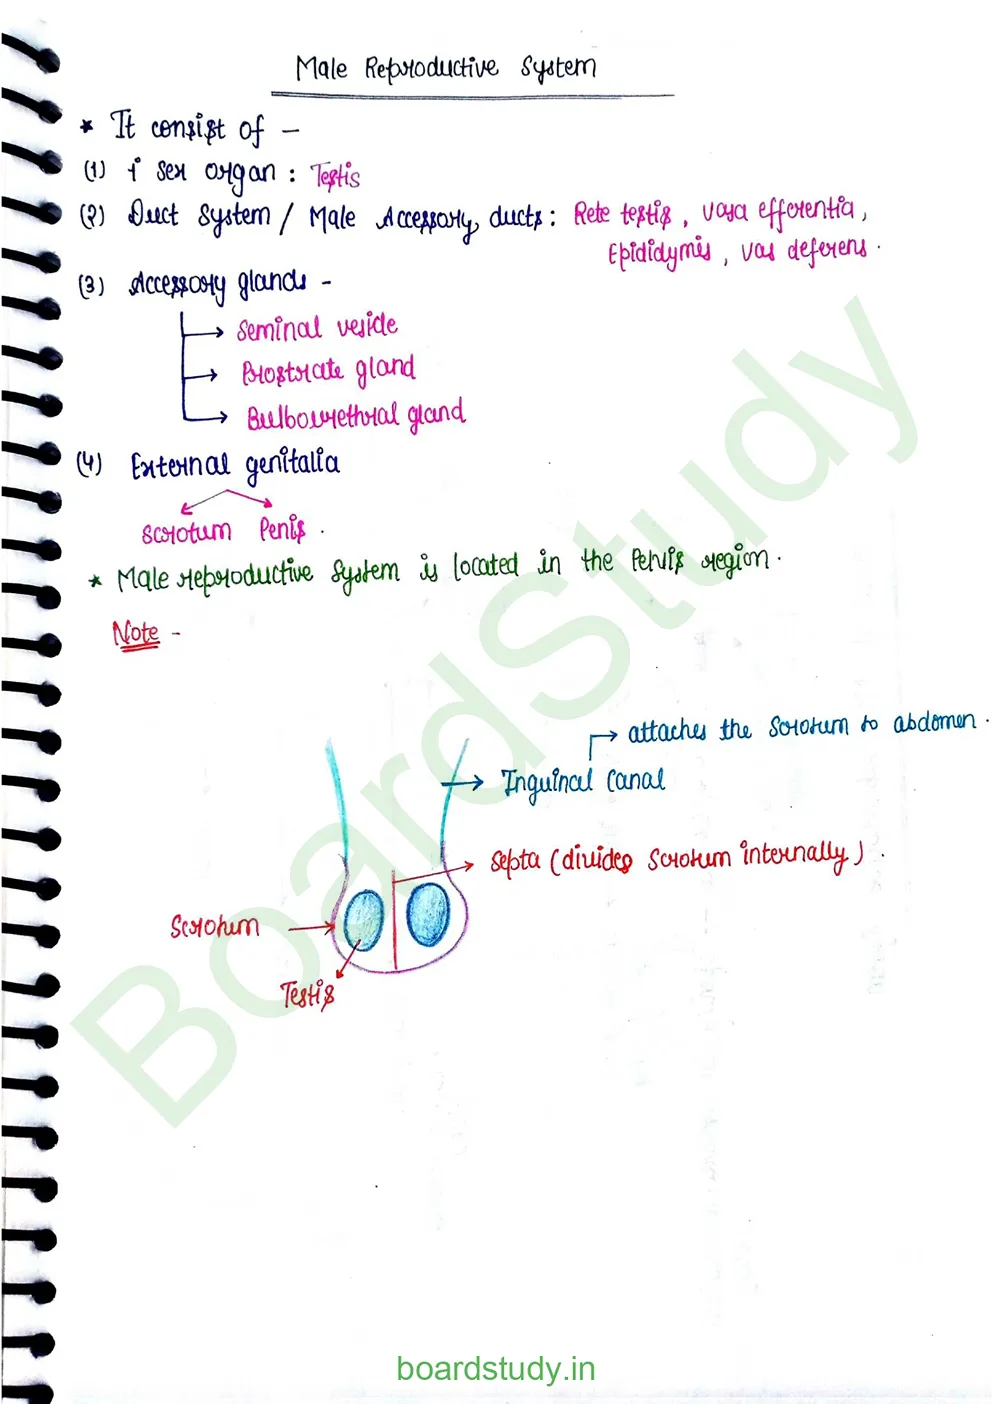 Male Reproductive System
* It consist of –
(1) 1° sex organ : Testis
(2) Duct System / Male Accessory ducts : Rete testis , vasa efferentia ,
Epididymis , vas deferens .
(3) Accessory glands -
Seminal vesicle
Prostrate gland
Bulbourethral gland
(4) External genitalia
Scrotum Penis .
* Male reproductive system is located in the Pelvis region .
Note -
attaches the Scrotum to abdomen .
Inguinal Canal
Septa (divides Scrotum internally) .
Scrotum
Testis
BoardStudy
boardstudy.in